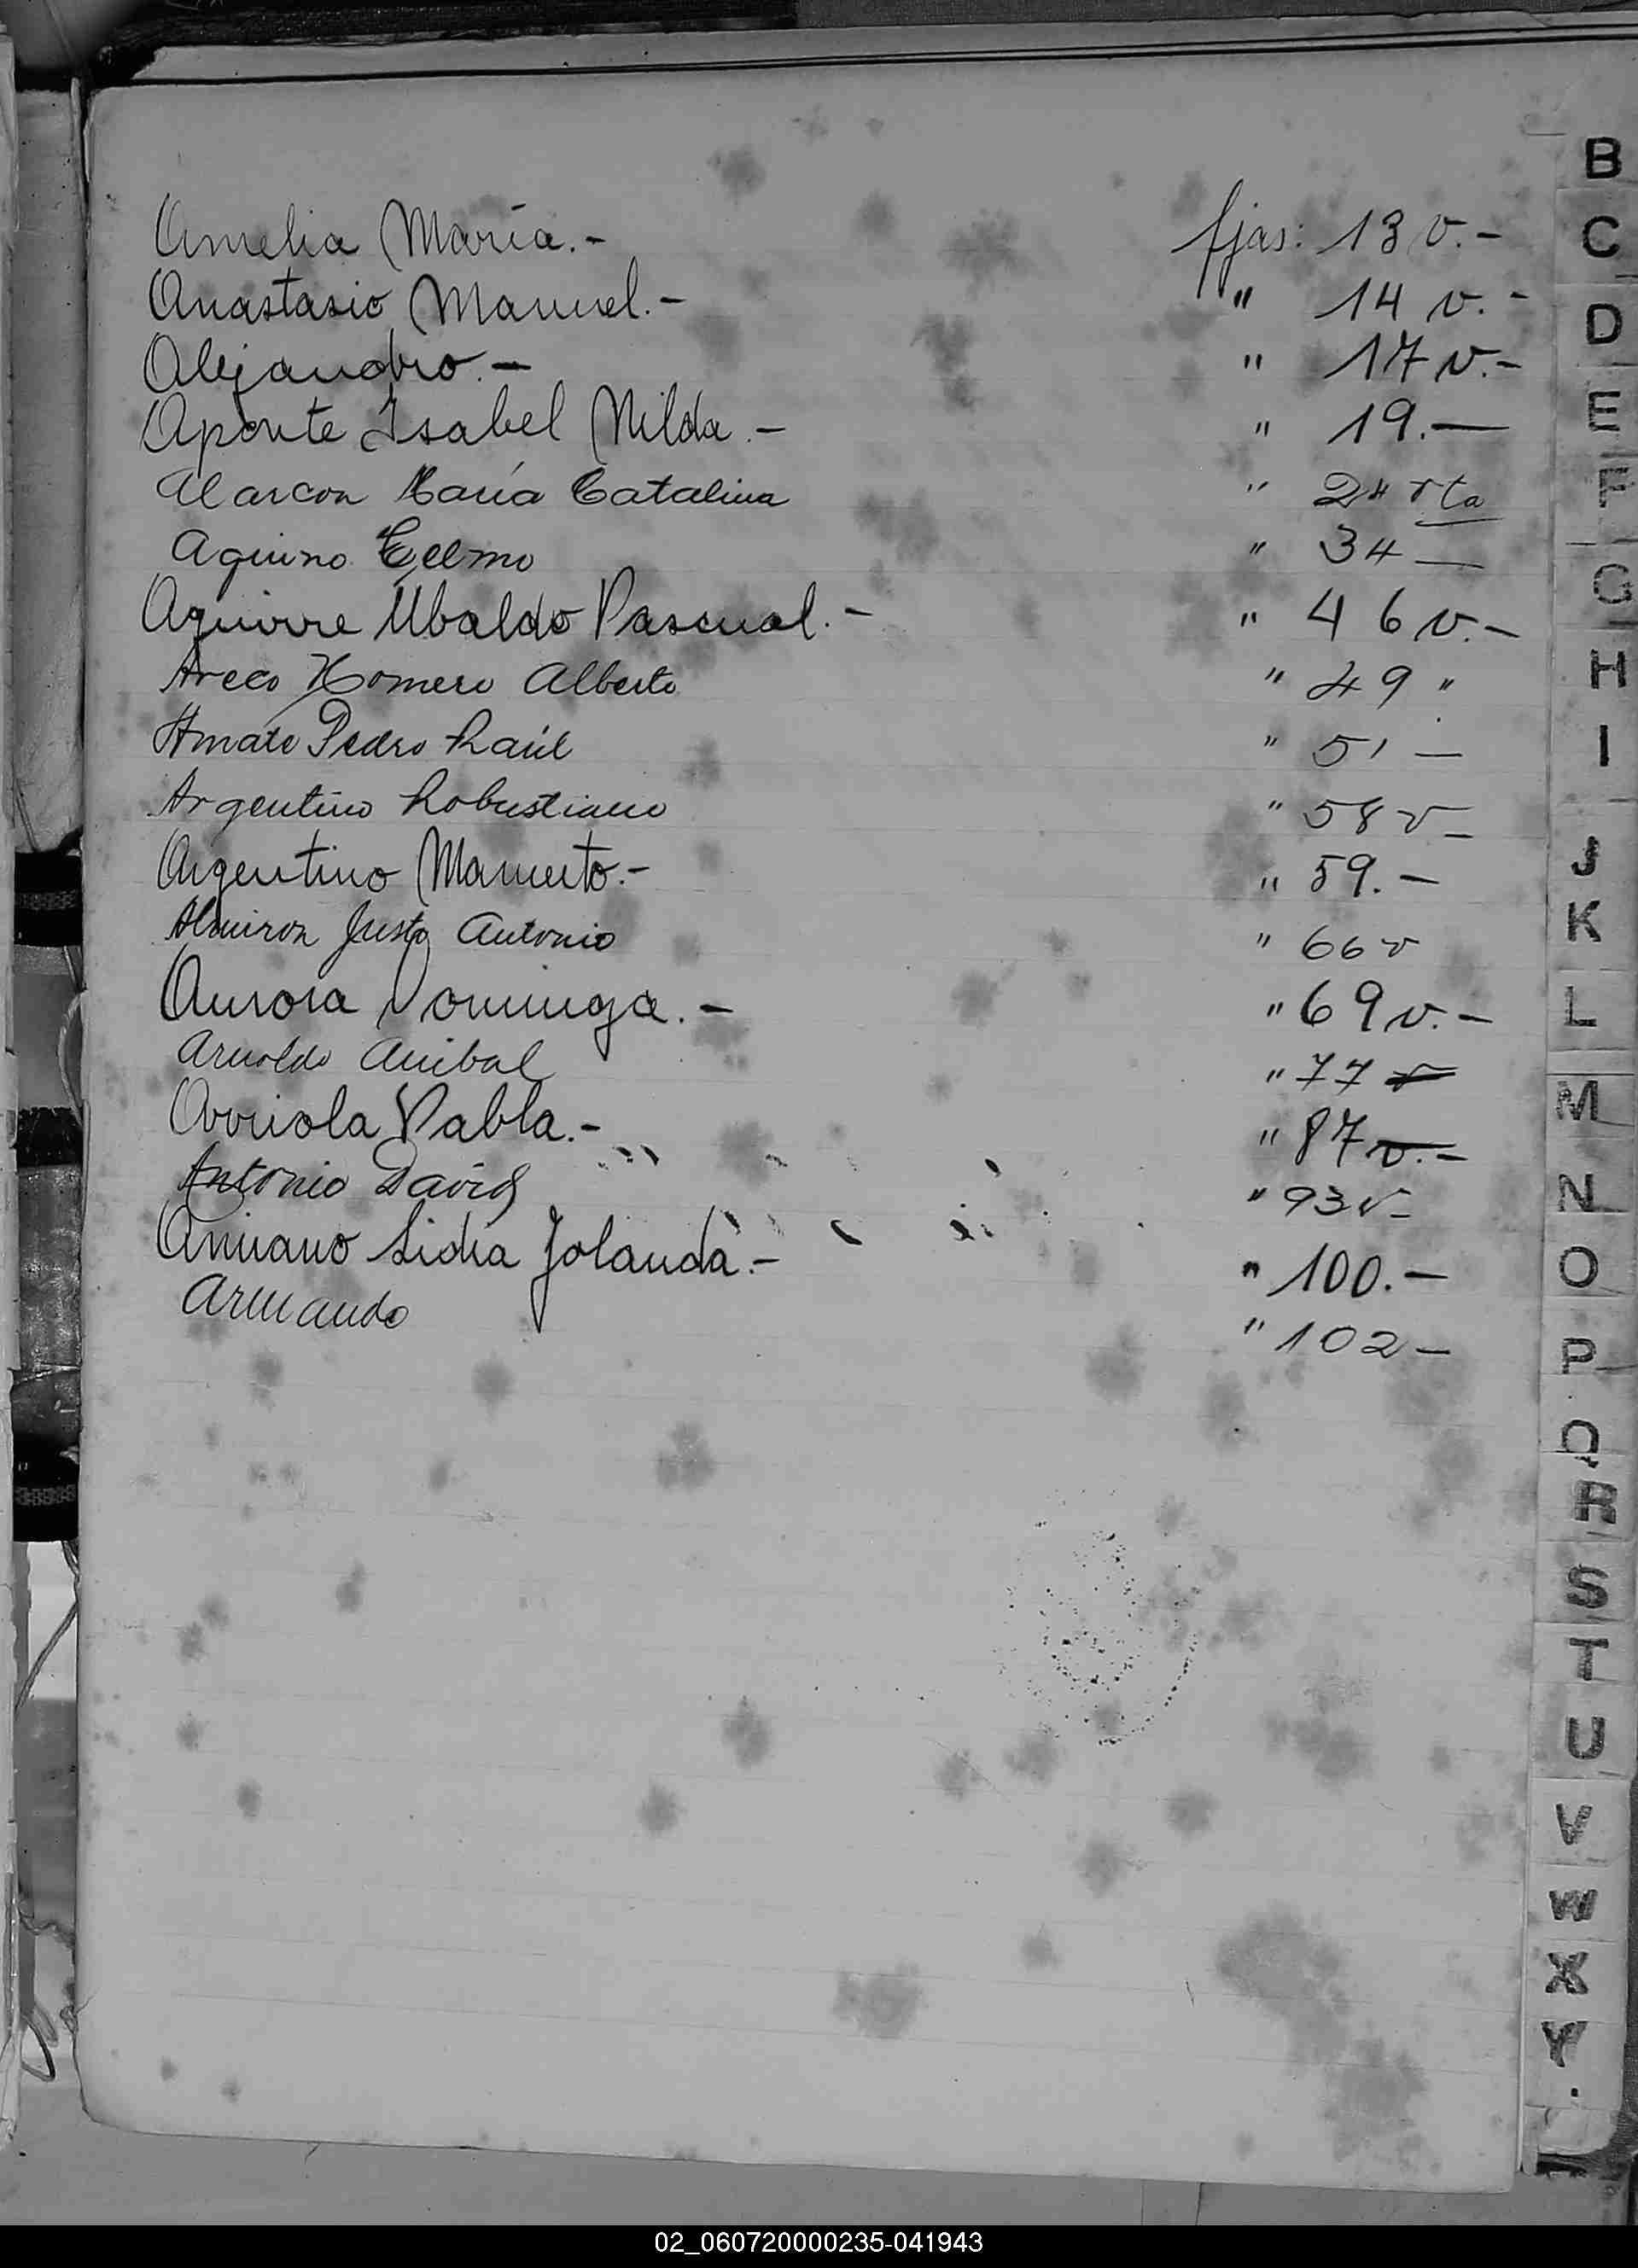 Amelia María.- fjas: 13 v.-
Anastasio Manuel.- " 14 v.-
Alejandro.- " 17 v.-
Aponte Isabel Nilda.- " 19.-
Alarcon María Catalina " 24 vta
Aquino Telmo " 34 -
Aguirre Ubaldo Pascual.- " 46 v.-
Areco Homero Alberto " 49 "
Amate Pedro Raúl " 51 -
Argentino Robustiano " 58 v -
Argentino Mamerto.- " 59.-
Almiron Justo Antonio " 66 v
Aurora Dominga.- " 69 v.-
Arnoldo Anibal " 77 v
Arriola Pabla.- " 87 v.-
Antonio David " 93 v -
Lidia Jolanda.- " 100.-
Armando " 102 -
B
C
D
E
F
G
H
I
J
K
L
M
N
O
P
Q
R
S
T
U
V
W
X
Y.
02_060720000235-041943